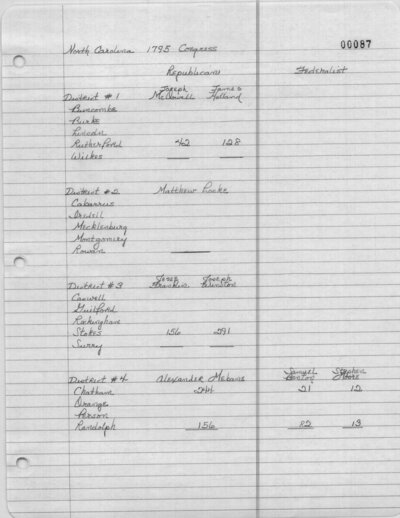 00087
North Carolina 1795 Congress
Republicans Federalist
Joseph James
District #1 McDowell Holland
Buncombe
Burke
Lincoln
Rutherford 42 128
Wilkes
District #2 Matthew Locke
Cabarrus
Iredell
Mecklenburg
Montgomery
Rowan
Jesse Joseph
District #3 Franklin Winston
Caswell
Guilford
Rockingham
Stokes 156 291
Surry
Samuel Stephen
District #4 Alexander Mebane Benton Moore
Chatham 244 21 12
Orange
Person
Randolph 156 82 13